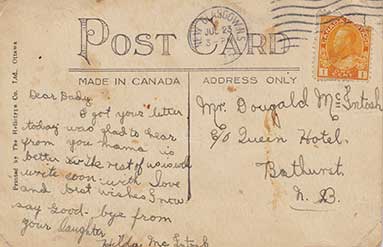 NEW GLASGOW N.S.
JUL 23
POST CARD
MADE IN CANADA
ADDRESS ONLY
Printed by The Heliotype Co. Ltd., Ottawa
Dear Dady
I got your letter
today was glad to hear
from you mama is
better the rest of us is well
write soon with love
and best wishes I now
say good-bye from
your Daughter
Hilda McIntosh
Mr. Dougald McIntosh
c/o Queen Hotel.
Bathurst
N. B.